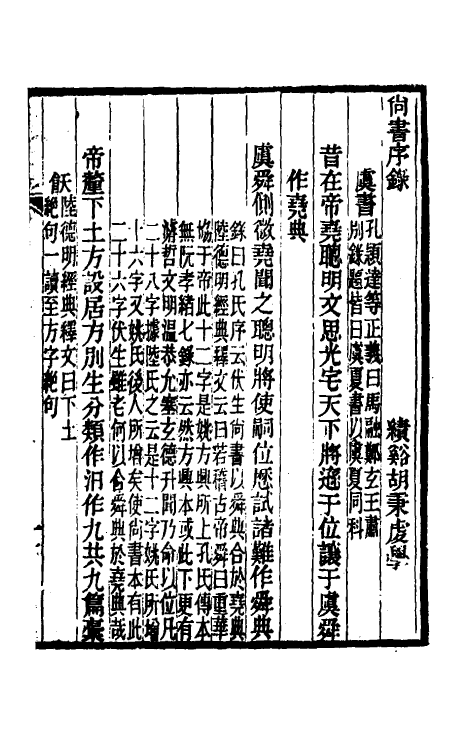 尚書序錄　績谿胡秉虔學
虞書孔穎達等正義曰馬融鄭玄王肅
別錄題皆曰虞夏書以虞夏同科
昔在帝堯聰明文思光宅天下將遜于位讓于虞舜
作堯典
虞舜側微堯聞之聰明將使嗣位歷試諸難作舜典
錄曰孔氏序云伏生尚書以舜典合於堯典
陸德明經典釋文云曰若稽古帝舜曰重華
協于帝此十二字是姚方興所上孔氏傳本
無阮孝緒七錄亦云然方興本或此下更有
濬哲文明溫恭允塞玄德升聞乃命以位凡
二十八字據陸氏之云是十二字姚氏所增
十六字又姚氏後人所增矣使尚書本有此
二十六字伏生雖老何以合舜典於堯典哉
帝釐下土方設居方別生分類作汨作九共九篇槀
飫陸德明經典釋文曰下土
絕句一讀至方字絕句